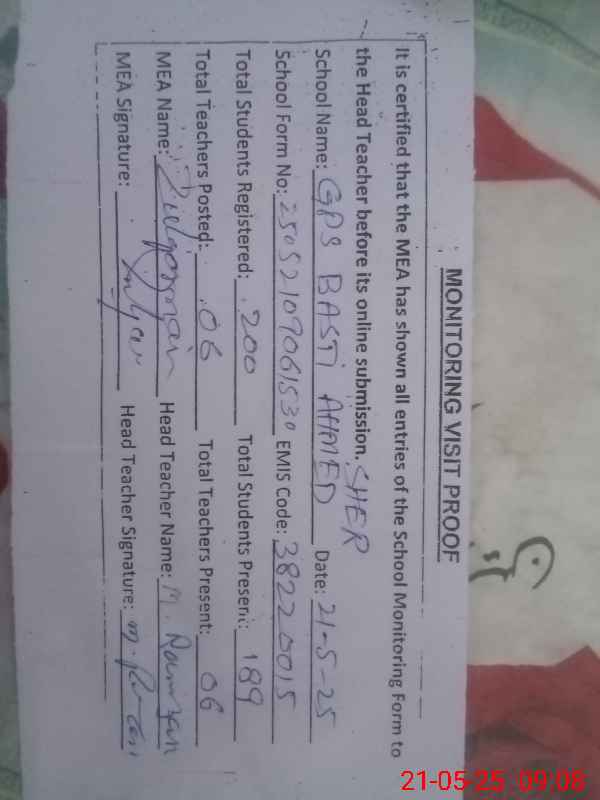 MONITORING VISIT PROOF
It is certified that the MEA has shown all entries of the School Monitoring Form to
the Head Teacher before its online submission. SHER
School Name: GPS BASTI AHMED Date: 21-5-25
School Form No: 25052109061530 EMIS Code: 38220015
Total Students Registered: 200 Total Students Present: 189
Total Teachers Posted: 06 Total Teachers Present: 06
MEA Name: Zulqarnain Head Teacher Name: M. Ramzan
MEA Signature: Head Teacher Signature:
21-05-25 09:08